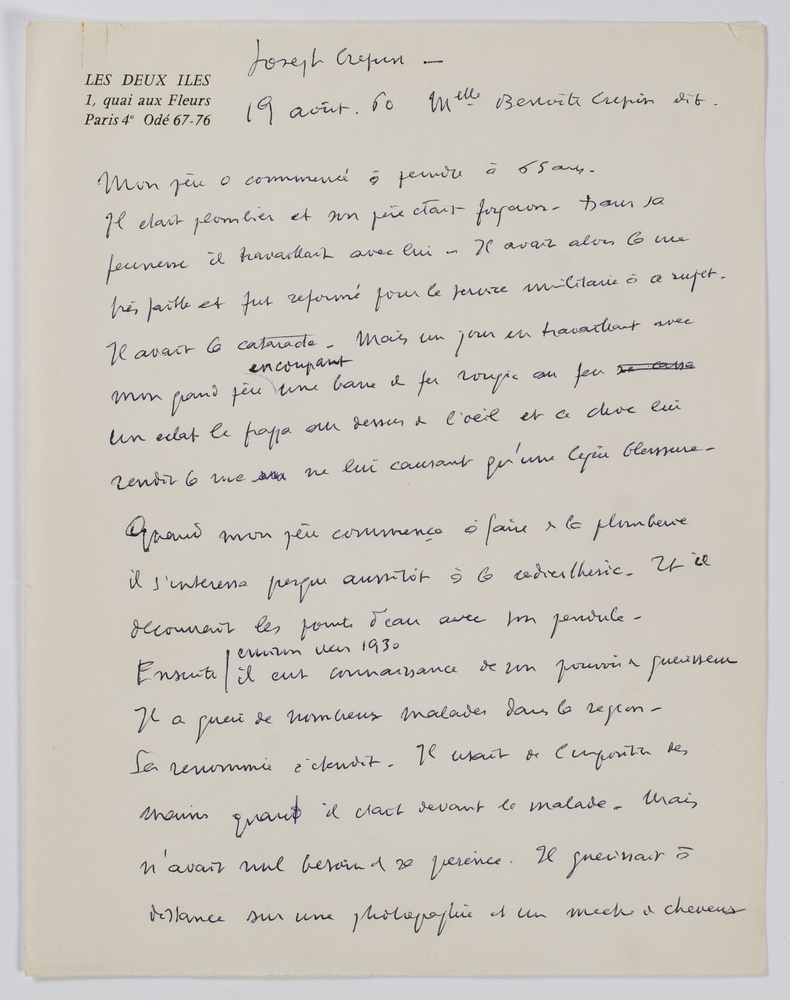 LES DEUX ILES
1, quai aux Fleurs
Paris 4e Odé 67-76
Joseph Crepin —
19 août . 60 Melle Benoite Crepin dit .
Mon père a commencé à peindre à 65 ans.
Il était plombier et son père était forgeron - Dans sa
jeunesse il travaillait avec lui - Il avait alors la vue
très faible et fut reformé pour le service militaire à ce sujet.
Il avait la cataracte - Mais un jour en travaillant avec
en coupant
mon grand père une barre de fer rougie au feu se casse
un eclat le frappa au dessus de l'oeil et ce choc lui
rendit la vue ne lui causant qu'une légère blessure -
Quand mon père commença à faire de la plomberie
il s'interessa presque aussitôt à la radiesthesie - Et il
découvrait les points d'eau avec son pendule -
environ vers 1930
Ensuite il eut connaissance de son pouvoir de guerisseur
Il a gueri de nombreux malades dans la region -
Sa renommée s'étendit - Il usait de l'imposition des
mains quand il était devant le malade - Mais
n'avait nul besoin de sa présence . Il guerissait à
distance sur une photographie et un meche de cheveux